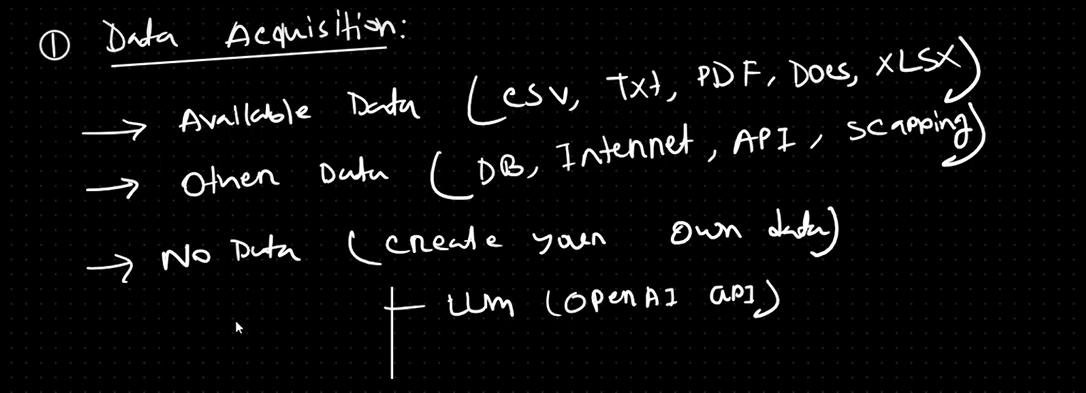 ① Data Acquisition:
→ Available Data (CSV, Txt, PDF, Docs, XLSX)
→ Other Data (DB, Internet, API, scapping)
→ No Data (create your own data)
LLM (OpenAI API)